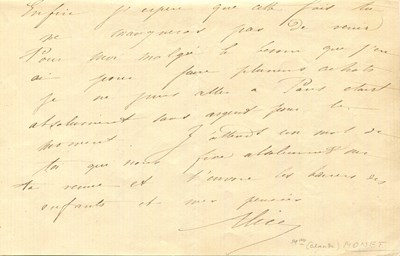 Enfin j'espère que cette fois tu
ne manqueras pas de venir
Pour moi malgré le besoin que j'en
ai pour faire plusieurs achats
je ne puis aller à Paris étant
absolument sans argent pour le
moment. J'attends un mot de
toi que nous fixe absolument sur
ta venue et t'envoie les baisers des
enfants et mes pensées
Alice
Mme (Alice) MONET